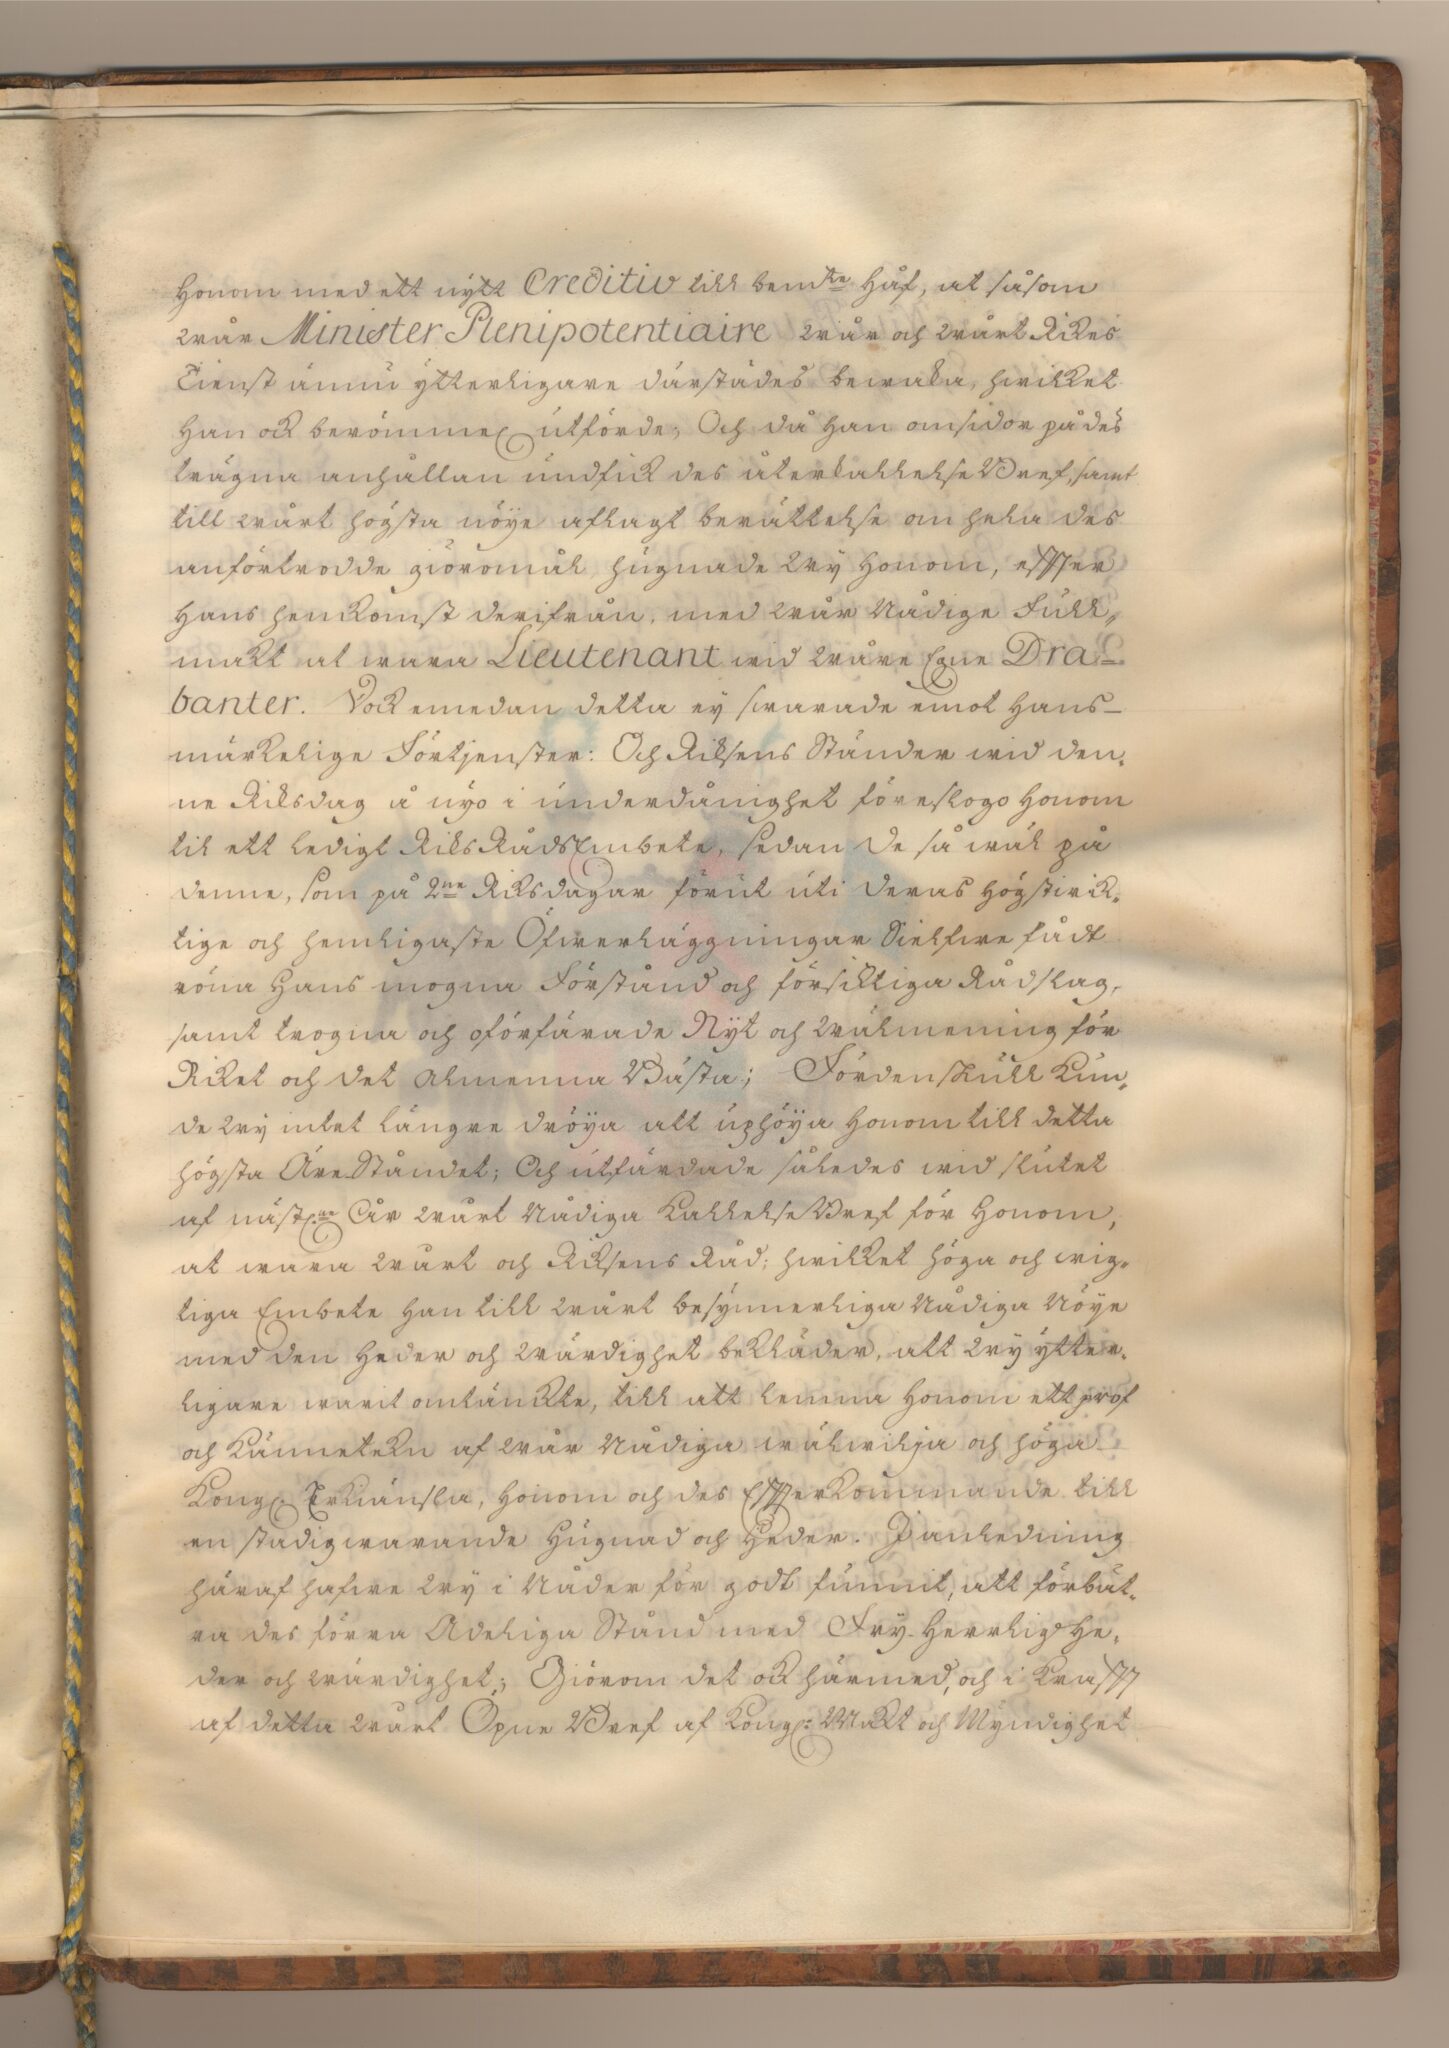 Honom med ett nytt Creditiv till bem:te Håf, at såsom
Wår Minister Plenipotentiaire Wår och Wårt Rikes
Tienst ännu ytterligare därstädes bewaka, hwilket
Han ock berömmel: utförde; Och då Han omsidor på dess
trägna anhållan undfick des återkallelse Bref, samt
till Wårt högsta nöye aflagt berättelse om hela des
anförtrodde giöromål, hugnade Wy Honom, effter
Hans hemkomst derifrån, med Wår Nådige Full,
makt at wara Lieutenant wid Wåre Egne Dra-
banter. Dock emedan detta ey swarade emot Hans
märkelige Förtjenster: Och Riksens Ständer wid den,
ne Riksdag å nyo i underdånighet föreslogo Honom
til ett ledigt RiksRådsEmbete, sedan De så wäl på
denne, som på 2ne Riksdagar förut uti Deras Högstwik,
tige och hemligaste Öfwerläggningar Sielfwe fådt
röna Hans mogna Förstånd och försiktiga Rådslag,
samt trogna och oförfärade Nyt och Wälmening för
Riket och det Almenna Bästa; Fördenskull kun,
de Wy intet längre dröya att uphöya Honom till detta
högsta ÄreStåndet; Och utfärdade således wid slutet
af nästl:ne År Wårt Nådiga KallelseBref för Honom,
at wara Wårt och Riksens Råd; hwilket höga och wig,
tiga Embete Han till Wårt besynnerliga Nådiga Nöye
med den Heder och Wärdighet bekläder, att Wy ytter,
ligare warit omtänckte, till att lemna Honom ett prof
och Känneteckn af Wår Nådiga wälwilja och höga
Kongl: Erkänsla, Honom och des Effterkommande till
en stadigwarande Hugnad och Heder. I anledning
häraf hafwe Wy i Nåder för godt funnit, att förbät,
ra des förra Adeliga Stånd med Fry-Herrlig He,
der och Wärdighet; Giörom det ock härmed, och i krafft
af detta Wårt Öpne Bref af Kongl: Makt och Myndighet